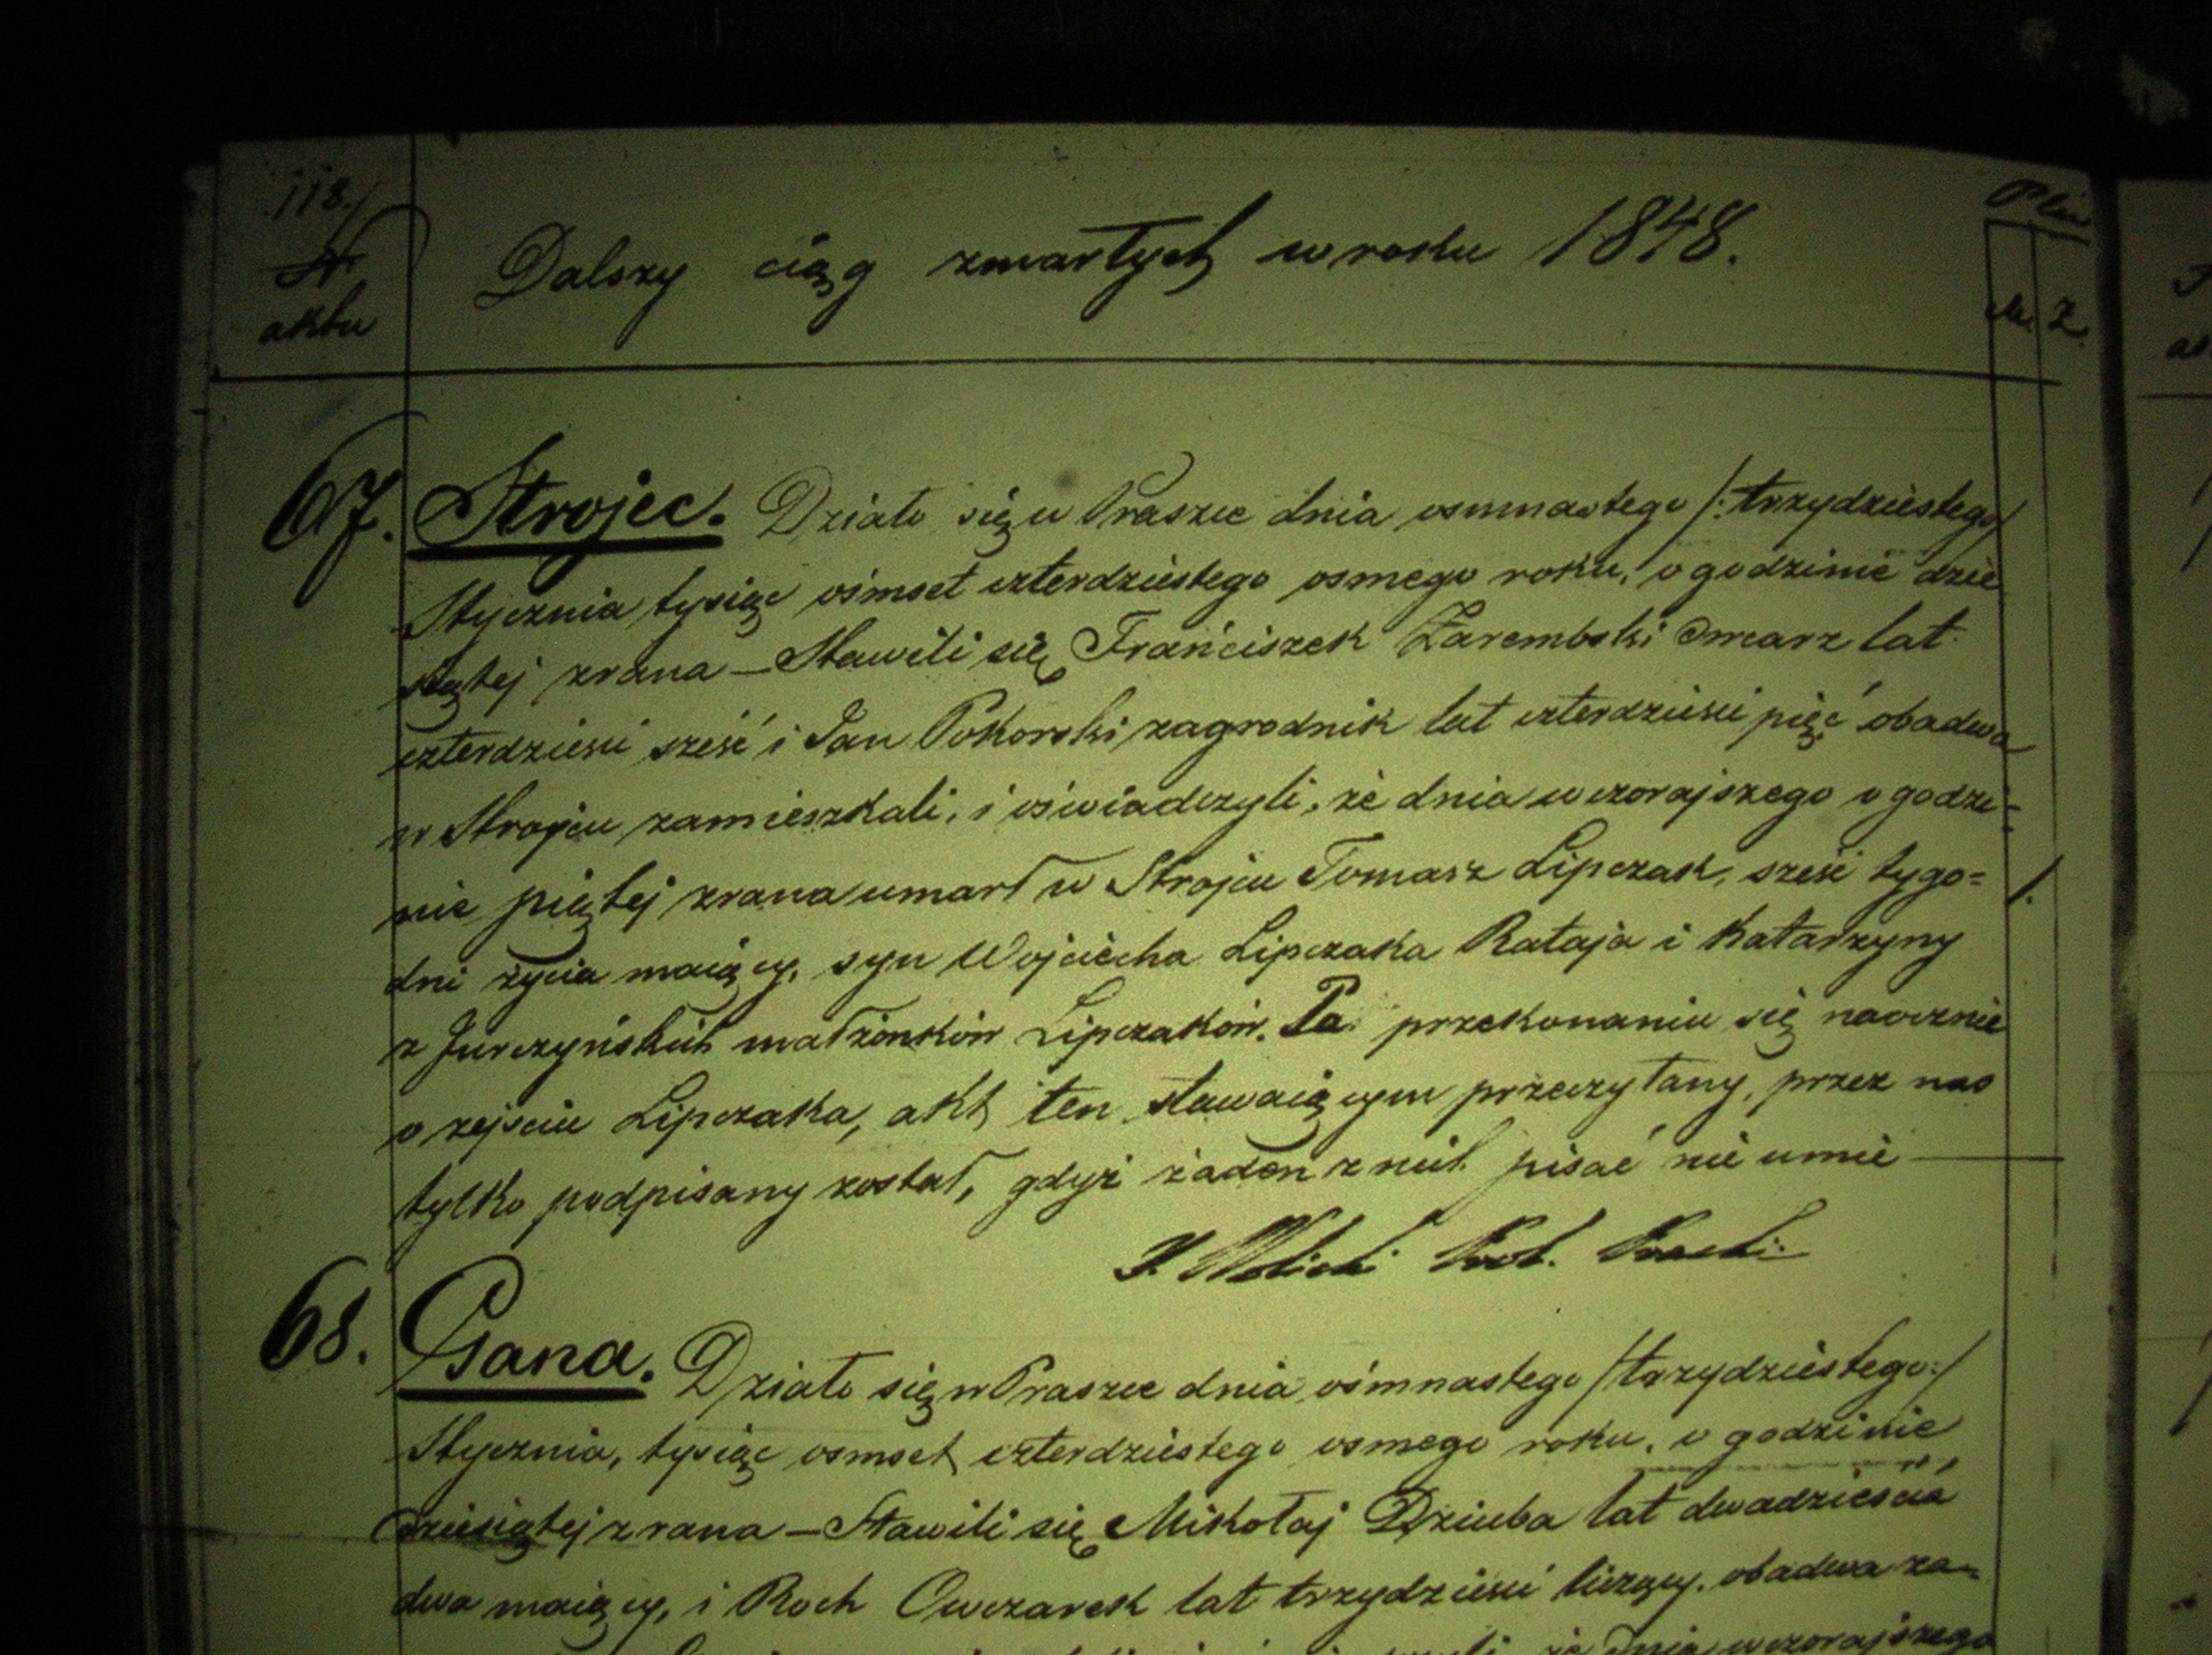 118./
Nr
aktu
Dalszy ciąg zmarłych w roku 1848.
Płeć
M. Ż.
67. Strojec. Działo się w Praszce dnia osmnastego /: trzydziestego/
Stycznia tysiąc ośmset czterdziestego osmego roku, o godzinie dzie
siątej zrana – Stawili się Franciszek Zarembski Owczarz lat
czterdzieści sześć i Jan Pokorski zagrodnik lat czterdzieści pięć obadwa
w Strojcu zamieszkali, i oświadczyli, że dnia wczorajszego o godzi-
nie piątej zrana umarł w Strojcu Tomasz Lipczak, sześć tygo=
dni życia maiący, syn Wojciecha Lipczaka Rataja i Katarzyny
z Jurczyńskich małżonków Lipczaków. Po przekonaniu się naocznie
o zejściu Lipczaka, akt ten stawaiącym przeczytany, przez nas
tylko podpisany został, gdyż żaden z nich pisać nie umie
1.
68. Gana. Działo się w Praszce dnia ośmnastego /trzydziestego:/
Stycznia, tysiąc osmset czterdziestego osmego roku, o godzinie
dziesiątej z rana – Stawili się Mikołaj Dziuba lat dwadzieścia
dwa maiący, i Roch Owczarek lat trzydzieści liczący, obadwa za-
że dnia wczorajszego